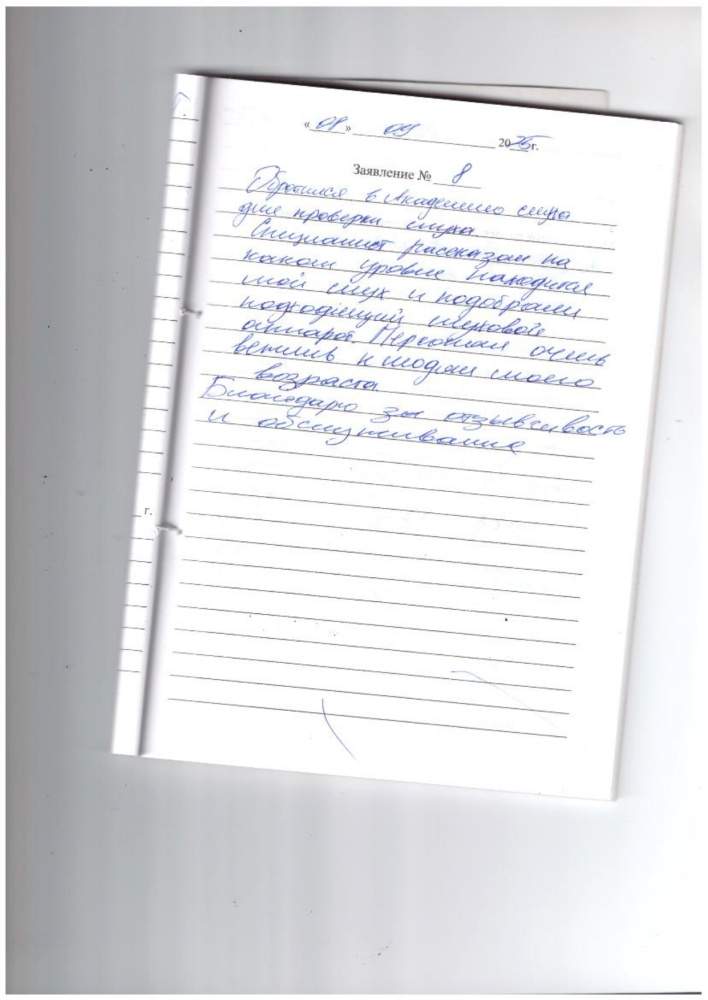 « 08 » 09 2025г.
Заявление № 8
Обратился в Академию слуха
для проверки слуха
Специалист рассказал на
каком уровне находится
мой слух и подобрали
подходящий слуховой
аппарат. Персонал очень
вежлив к людям моего
возраста.
Благодарю за отзывчивость
и обслуживание
г.